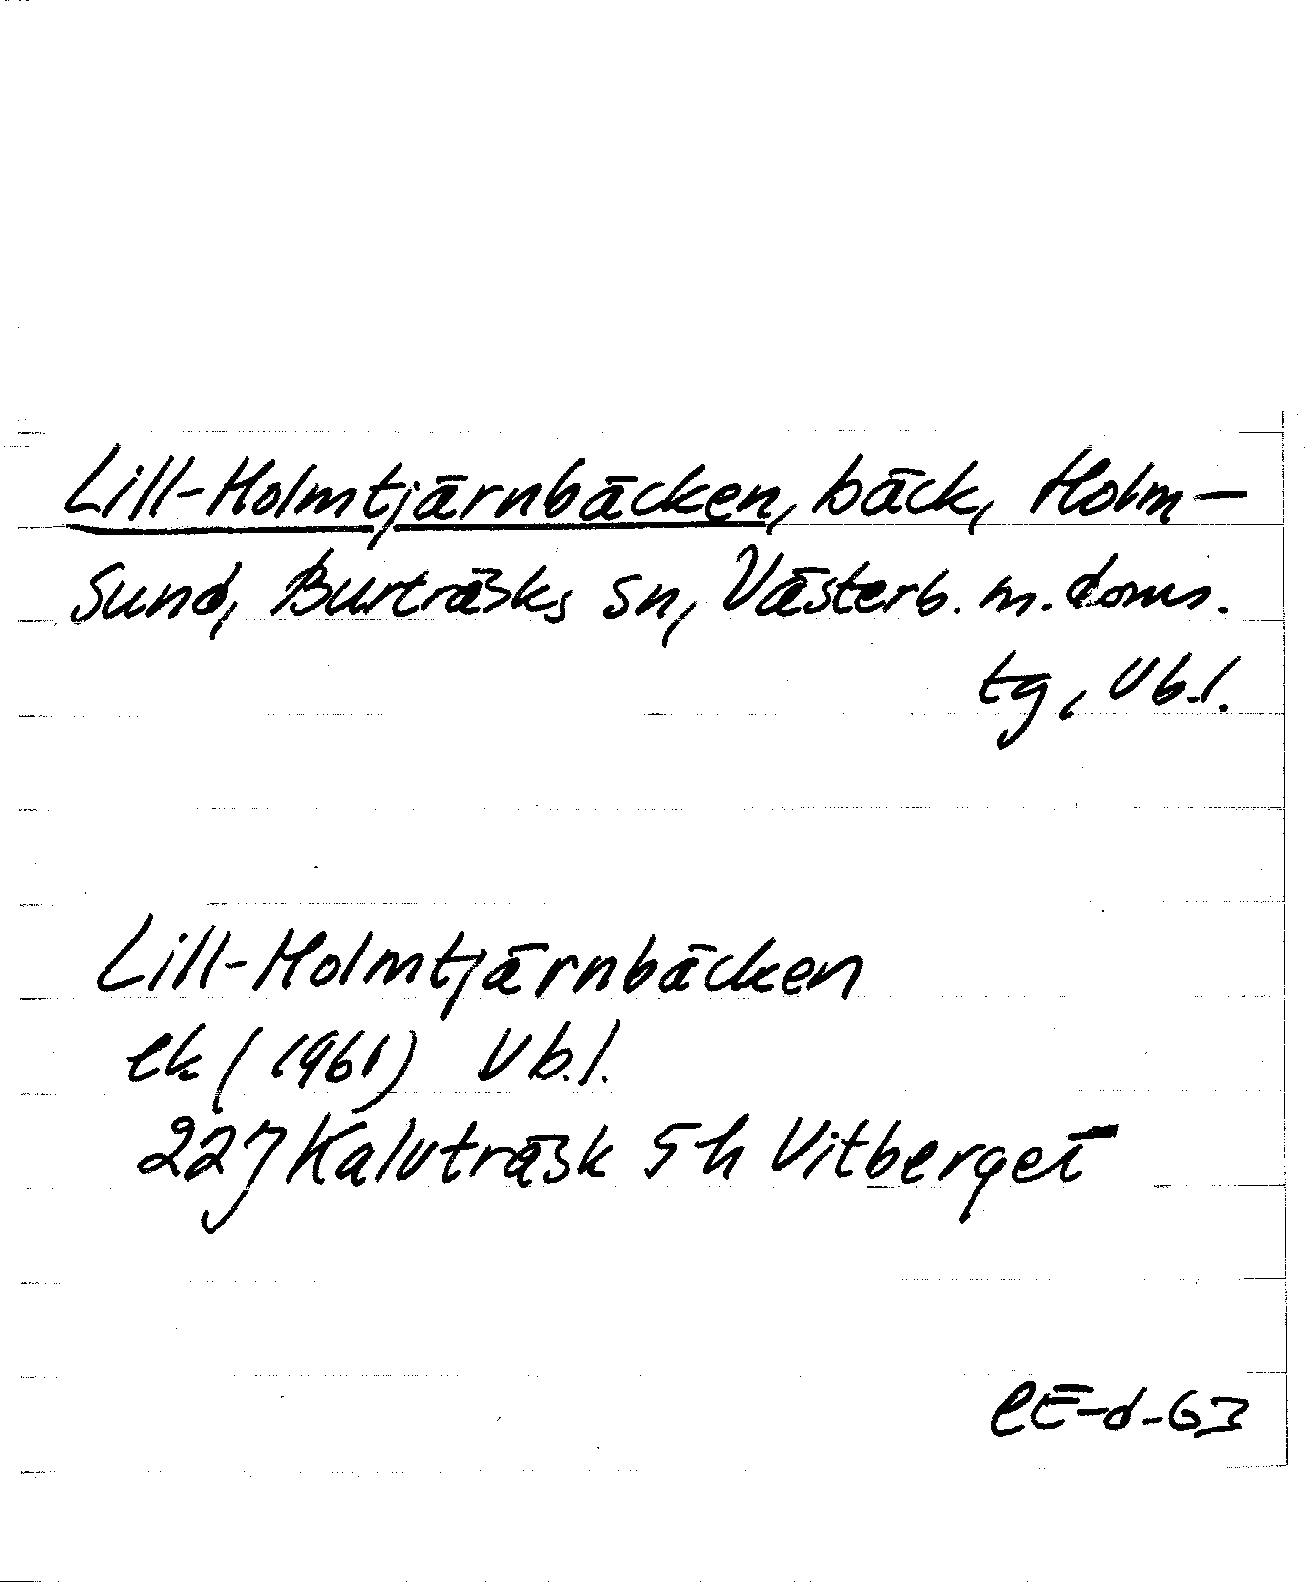 Lill-Holmtjärnbäcken, bäck, Holm-
sund, Burträsks sn, Västerb. m. doms.
tg, Vb.l.
Lill-Holmtjärnbäcken
ek (1961) Vb.l.
22J Kalvträsk 5h Vitberget
CE-d-63